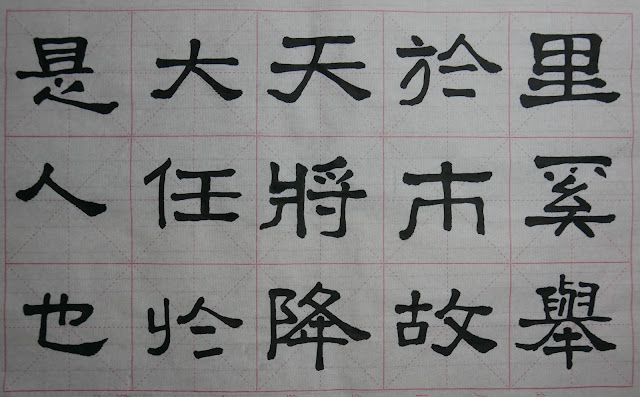 里奚舉
於市故
天將降
大任於
是人也